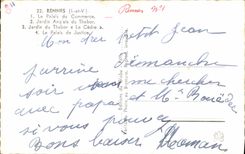 22. RENNES (I.-et-V.)
1. Le Palais du Commerce.
2. Jardin Anglais du Thabor.
3. Jardin du Thabor « Le Cèdre ».
4. Le Palais de Justice.
Rennes
Mon cher petit Jean
J'arrive Dimanche
soir me chercher
avec papa et Mr
si vous pouvez
Bons baisers Maman